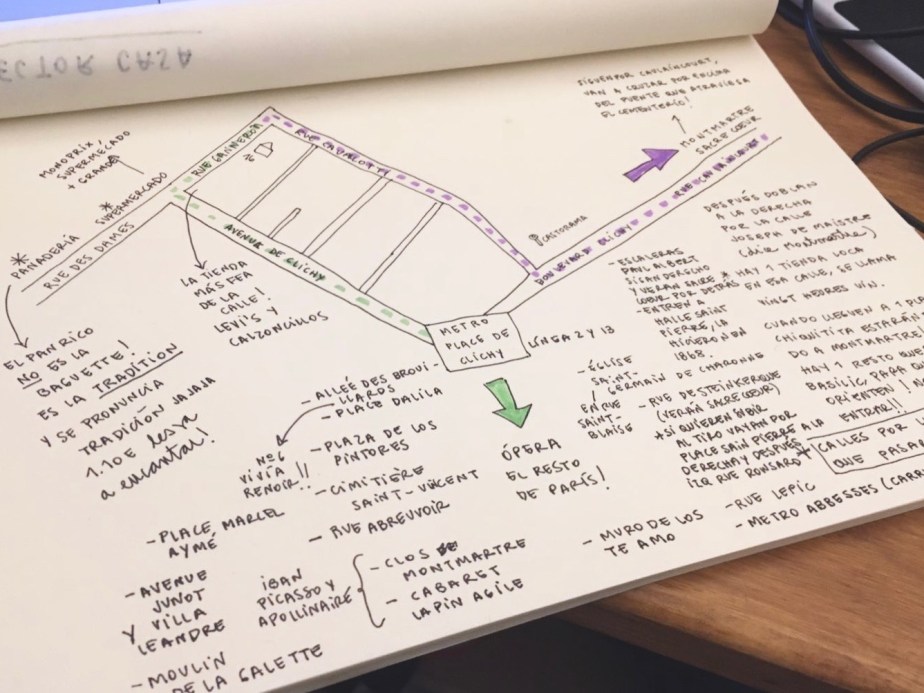 SIGUEN POR CAULAINCOURT,
VAN A CRUZAR POR ENCIMA
DEL PUENTE QUE ATRAVIESA
EL CEMENTERIO!
MONTMARTRE
SACRE CŒUR
MONOPRIX!
SUPERMECADO
+ GRANDE
* SUPERMERCADO
* PANADERÍA
RUE DES DAMES
RUE GANNERON
RUE CAPALOTTI
AVENUE DE CLICHY
BOULEVARD CLICHY
CASTORAMA
METRO
PLACE DE
CLICHY
LÍNEA 2 Y 13
LA TIENDA
MÁS FEA
DE LA
CALLE!
LEVI'S Y
CALZONCILLOS
EL PAN RICO
NO ES LA
BAGUETTE!
ES LA TRADITION
Y SE PRONUNCIA
TRADICIÓN JAJAJA
1.10€
a encantar!
DESPUÉS DOBLAN
A LA DERECHA
POR LA CALLE
JOSEPH DE MAISTRE
(dir. Montmartre)
* HAY 1 TIENDA LOCA
EN ESA CALLE, SE LLAMA
VINGT HEURES VIN.
CUANDO LLEGUEN A 1
CHIQUITITA ESTARÁN
DO A MONTMARTRE!
HAY 1 RESTO QUE
BASILIC, PARA QUE
ORIENTEN!
ENTRAR!!
CALLES POR
QUE PASAN
- ESCALERAS
PAUL ALBERT
SIGAN DERECHO
Y VERÁN SACRE
CŒUR POR DETRÁS
- ENTREN A
HALLE SAINT
PIERRE, LA
HICIERON EN
1868.
- ÉGLISE
SAINT-
GERMAIN DE CHARONNE
EN RUE
SAINT-
BLAISE
- RUE DE STEINKERQUE
(VERÁN SACRE CŒUR)
* SI QUIEREN SUBIR
AL TIRO VAYAN POR
PLACE SAIN PIERRE A LA
DERECHA Y DESPUÉS
IZQ RUE RONSARD
- ALLEÉ DES BROUI-
LLARDS
- PLACE DALILA
Nº 6
VIVÍA
RENOIR!!
- PLAZA DE LOS
PINTORES
- CIMITIÈRE
SAINT-VINCENT
- RUE ABREUVOIR
ÓPERA
EL RESTO
DE PARÍS!
- PLACE MARCEL
AYMÉ
- AVENUE
JUNOT
Y VILLA
LEANDRE
IBAN
PICASSO Y
APOLLINAIRE
- CLOS DE
MONTMARTRE
- CABARET
LAPIN AGILE
- MOULIN
DE LA GALETTE
- MURO DE LOS
TE AMO
- RUE LEPIC
- METRO ABBESSES